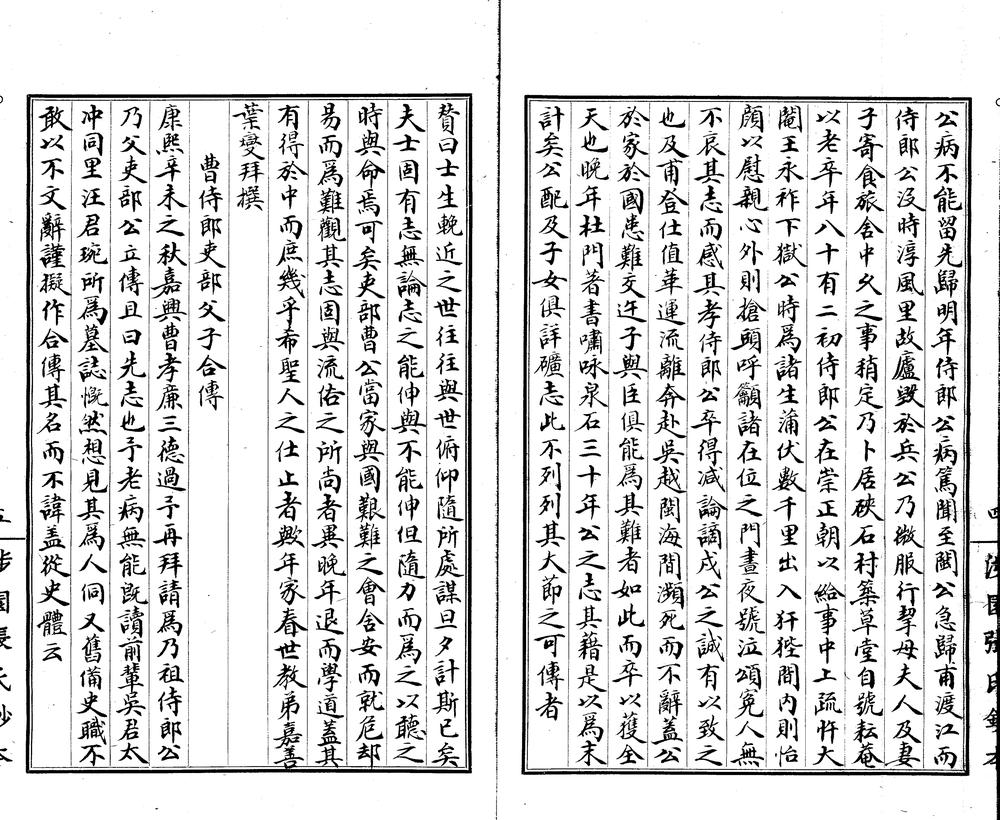 公病不能留先歸明年侍郎公病篤聞至閩公急歸甫渡江而
侍郎公沒時淳風里故廬毀於兵公乃微服行挈母夫人及妻
子寄食旅舍中久之事稍定乃卜居硤石村築草堂自號耘菴
以老卒年八十有二初侍郎公在崇正朝以給事中上疏忤大
閹王永祚下獄公時為諸生蒲伏數千里出入犴狴閤內則怡
顔以慰親心外則搶頭呼籲諸在位之門晝夜號泣頌冤人無
不哀其志而感其孝侍郎公卒得減論謫戍公之誠有以致之
也及甫登仕值革運流離奔赴吳越閩海間瀕死而不辭蓋公
於家於國患難交迕子與臣俱能為其難者如此而卒以獲全
天也晚年杜門著書嘯咏泉石三十年公之志其藉是以為末
計矣公配及子女俱詳礦志此不列列其大節之可傳者
贊曰士生輓近之世往往與世俯仰隨所處謀旦夕計斯已矣
夫士固有志無論志之能伸與不能伸但隨力而為之以聽之
時與命焉可矣吏部曹公當家與國艱難之會舍安而就危却
易而為難觀其志固與流俗之所尚者異晚年退而學道蓋其
有得於中而庶幾乎希聖人之仕止者歟年家眷世教弟嘉善
葉燮拜撰
曹侍郎吏部父子合傳
康熙辛未之秋嘉興曹孝廉三德過予再拜請為乃祖侍郎公
乃父吏部公立傳且曰先志也予老病無能既讀前輩吳君太
冲同里汪君琬所為墓誌慨然想見其為人伺又舊備史職不
敢以不文辭謹擬作合傳其名而不諱蓋從史體云